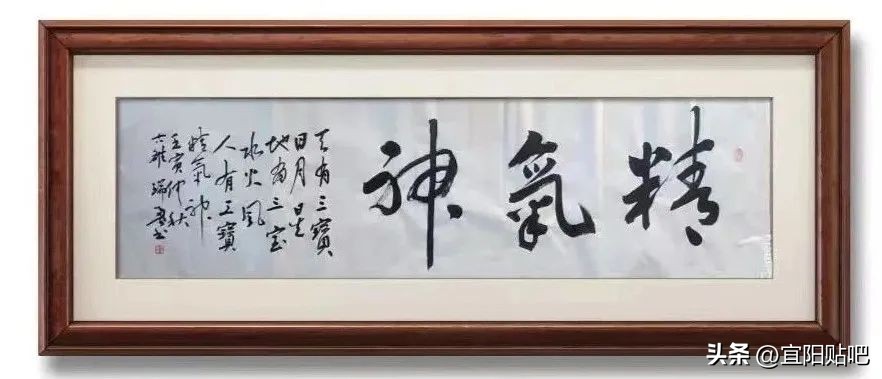 精氣神
天有三寶
日月星
地有三宝
水火風
人有三寶
精氣神
壬寅仲秋
瑞
头条 @宜阳贴吧